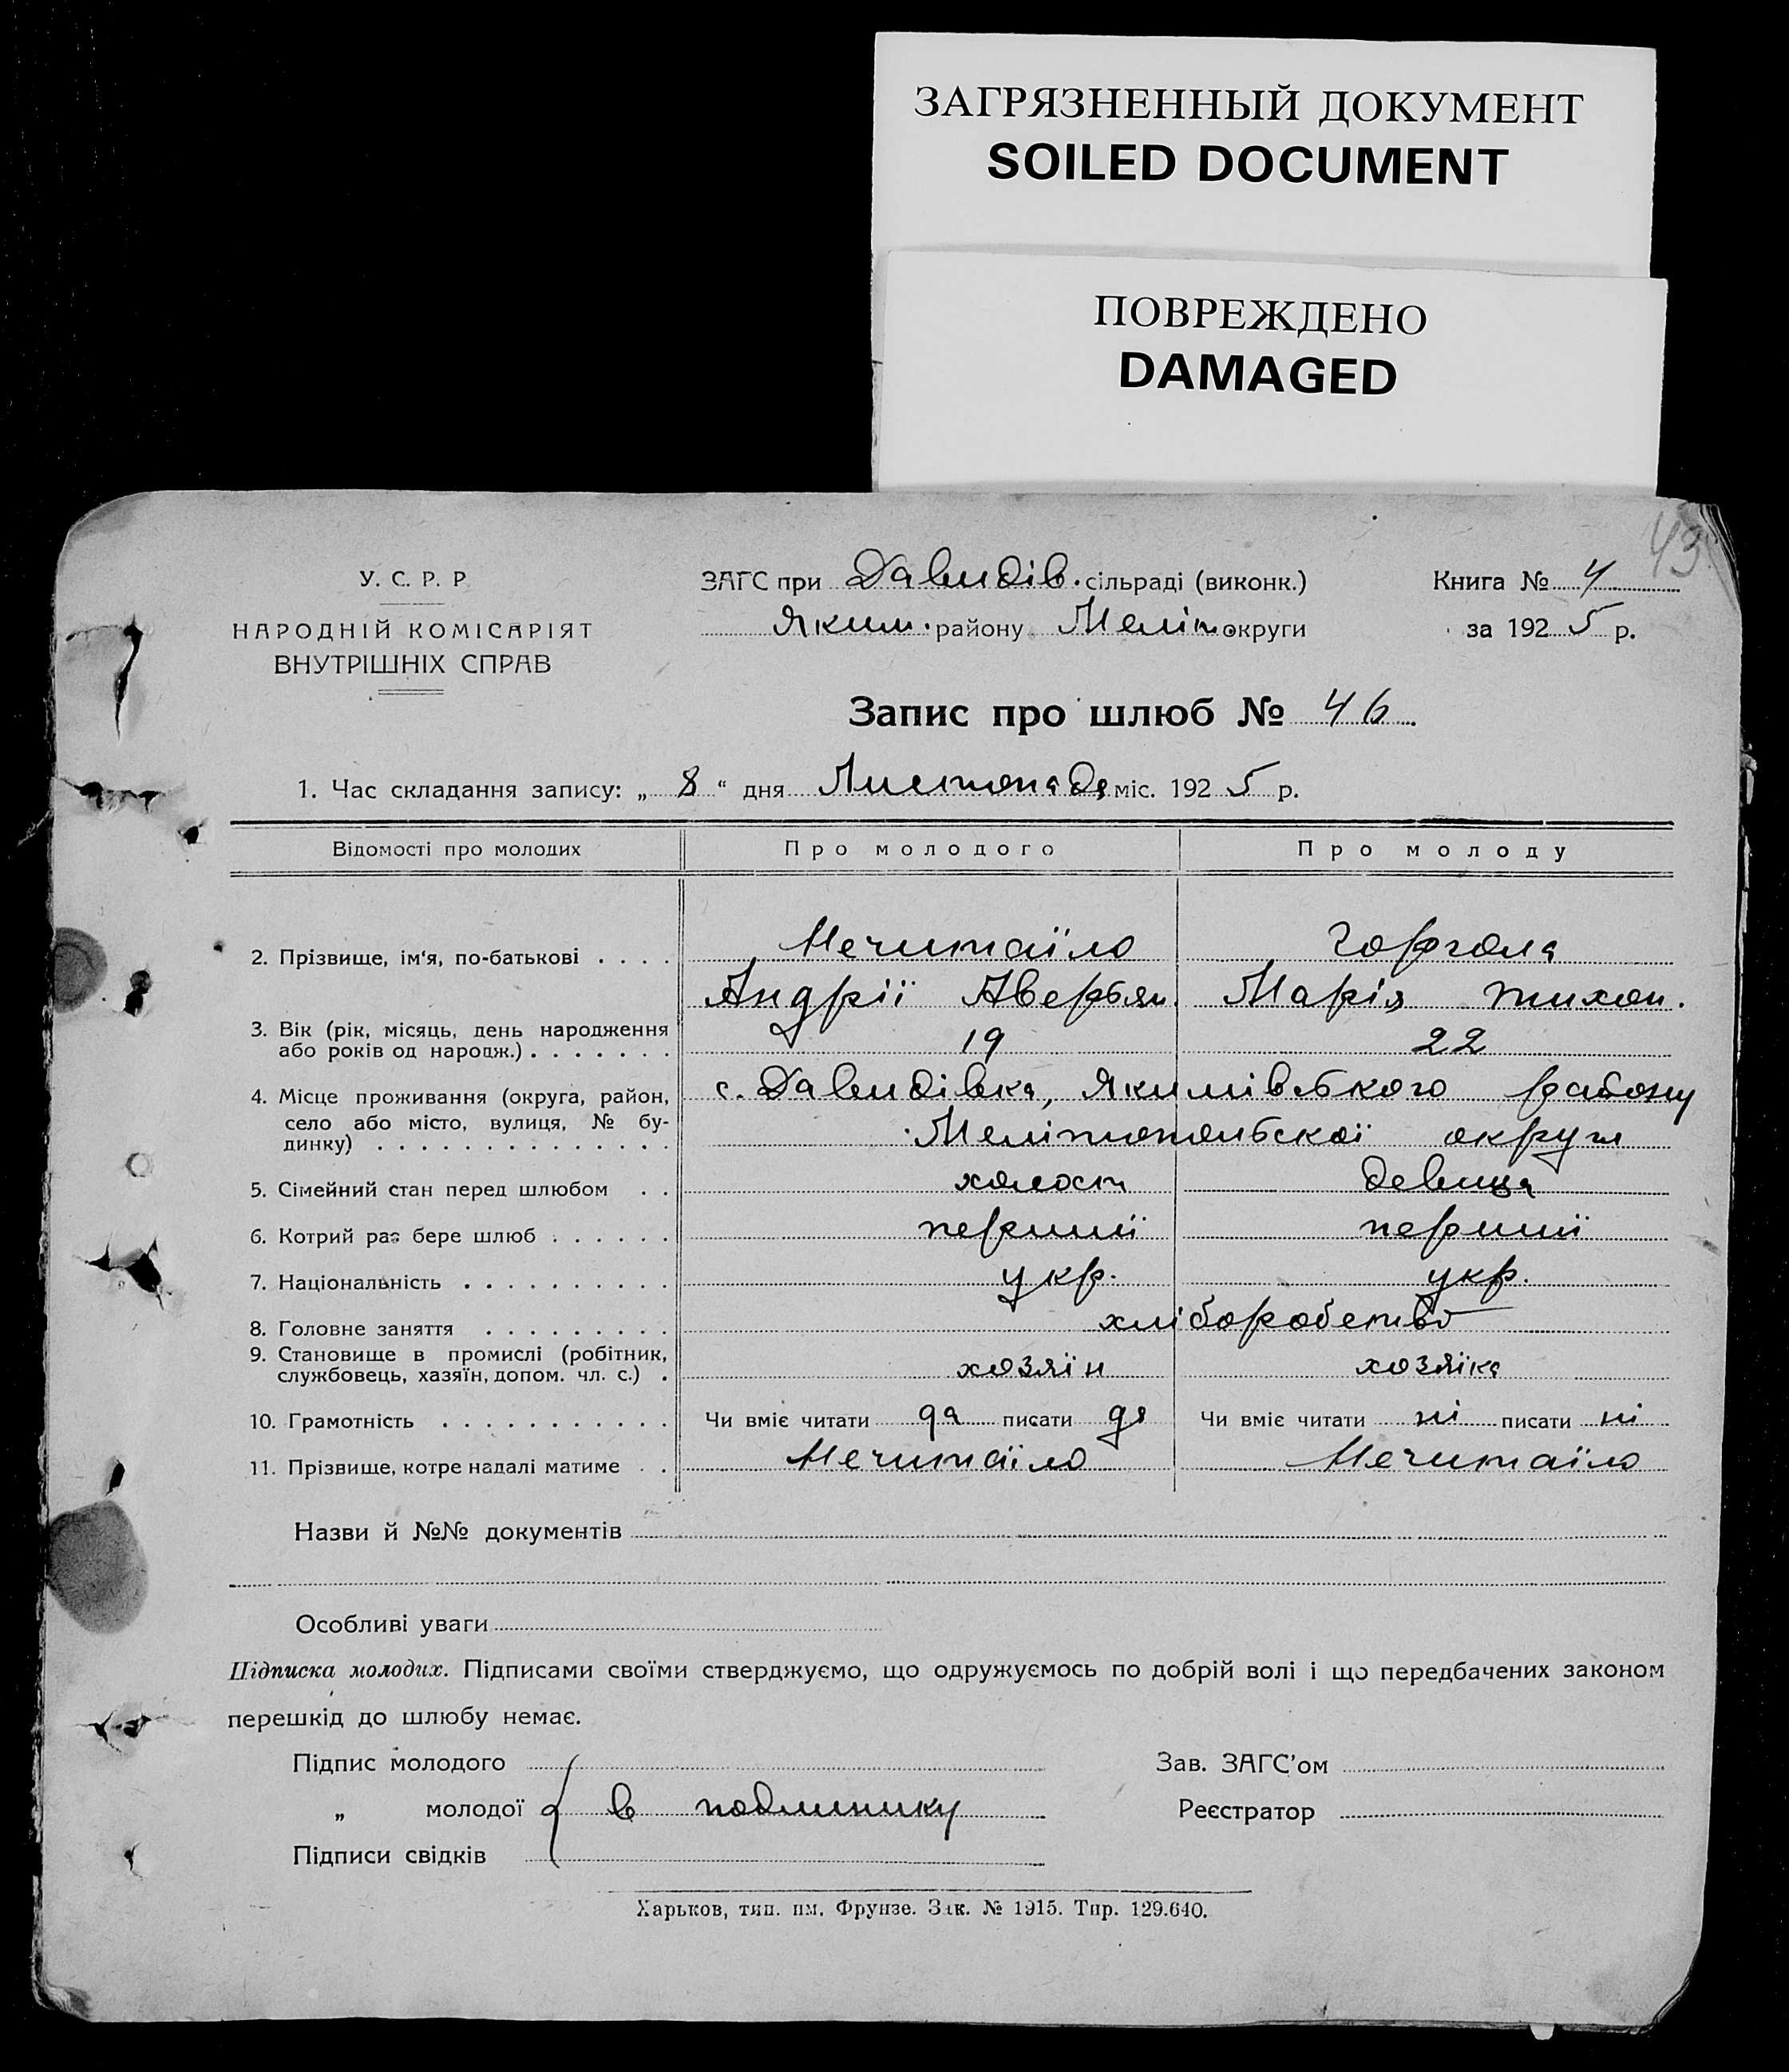 ЗАГРЯЗНЕННЫЙ ДОКУМЕНТ
SOILED DOCUMENT
ПОВРЕЖДЕНО
DAMAGED
43
У. С. Р. Р.
НАРОДНІЙ КОМІСАРІЯТ
ВНУТРІШНІХ СПРАВ
ЗАГС при Давидів. сільраді (виконк.)
Яким. району Меліт. округи
Книга № 4
за 1925 р.
Запис про шлюб № 46
1. Час складання запису: „ 8 “ дня Листопада міс. 1925 р.
Відомості про молодих Про молодого Про молоду
2. Прізвище, ім'я, по-батькові . . . . Нечитаїло Горгола
Андрії Аверьян. Марія тихон.
3. Вік (рік, місяць, день народження
або років од народж.) . . . . . . . 19 22
4. Місце проживання (округа, район, с. Давидівка, Якимівського району
село або місто, вулиця, № бу-
динку) . . . . . . . . . . . . . . Мелітопольскої округи
5. Сімейний стан перед шлюбом . . холост девица
6. Котрий раз бере шлюб . . . . . . перший перший
7. Національність . . . . . . . . . . укр. укр.
8. Головне заняття . . . . . . . . . хліборобство
9. Становище в промислі (робітник,
службовець, хазяїн, допом. чл. с.) . хозяїн хозяїка
10. Грамотність . . . . . . . . . . . Чи вміє читати да писати да Чи вміє читати ні писати ні
11. Прізвище, котре надалі матиме . . Нечитаїло Нечитаїло
Назви й №№ документів
Особливі уваги
Підписка молодих. Підписами своїми стверджуємо, що одружуємось по добрій волі і що передбачених законом
перешкід до шлюбу немає.
Підпис молодого Зав. ЗАГС'ом
„ молодої в подлинику Реєстратор
Підписи свідків
Харьков, тип. им. Фрунзе. Зак. № 1915. Тир. 129.640.